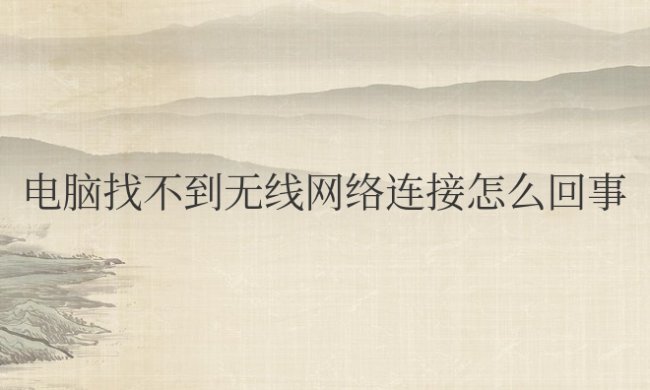 电脑找不到无线网络连接怎么回事